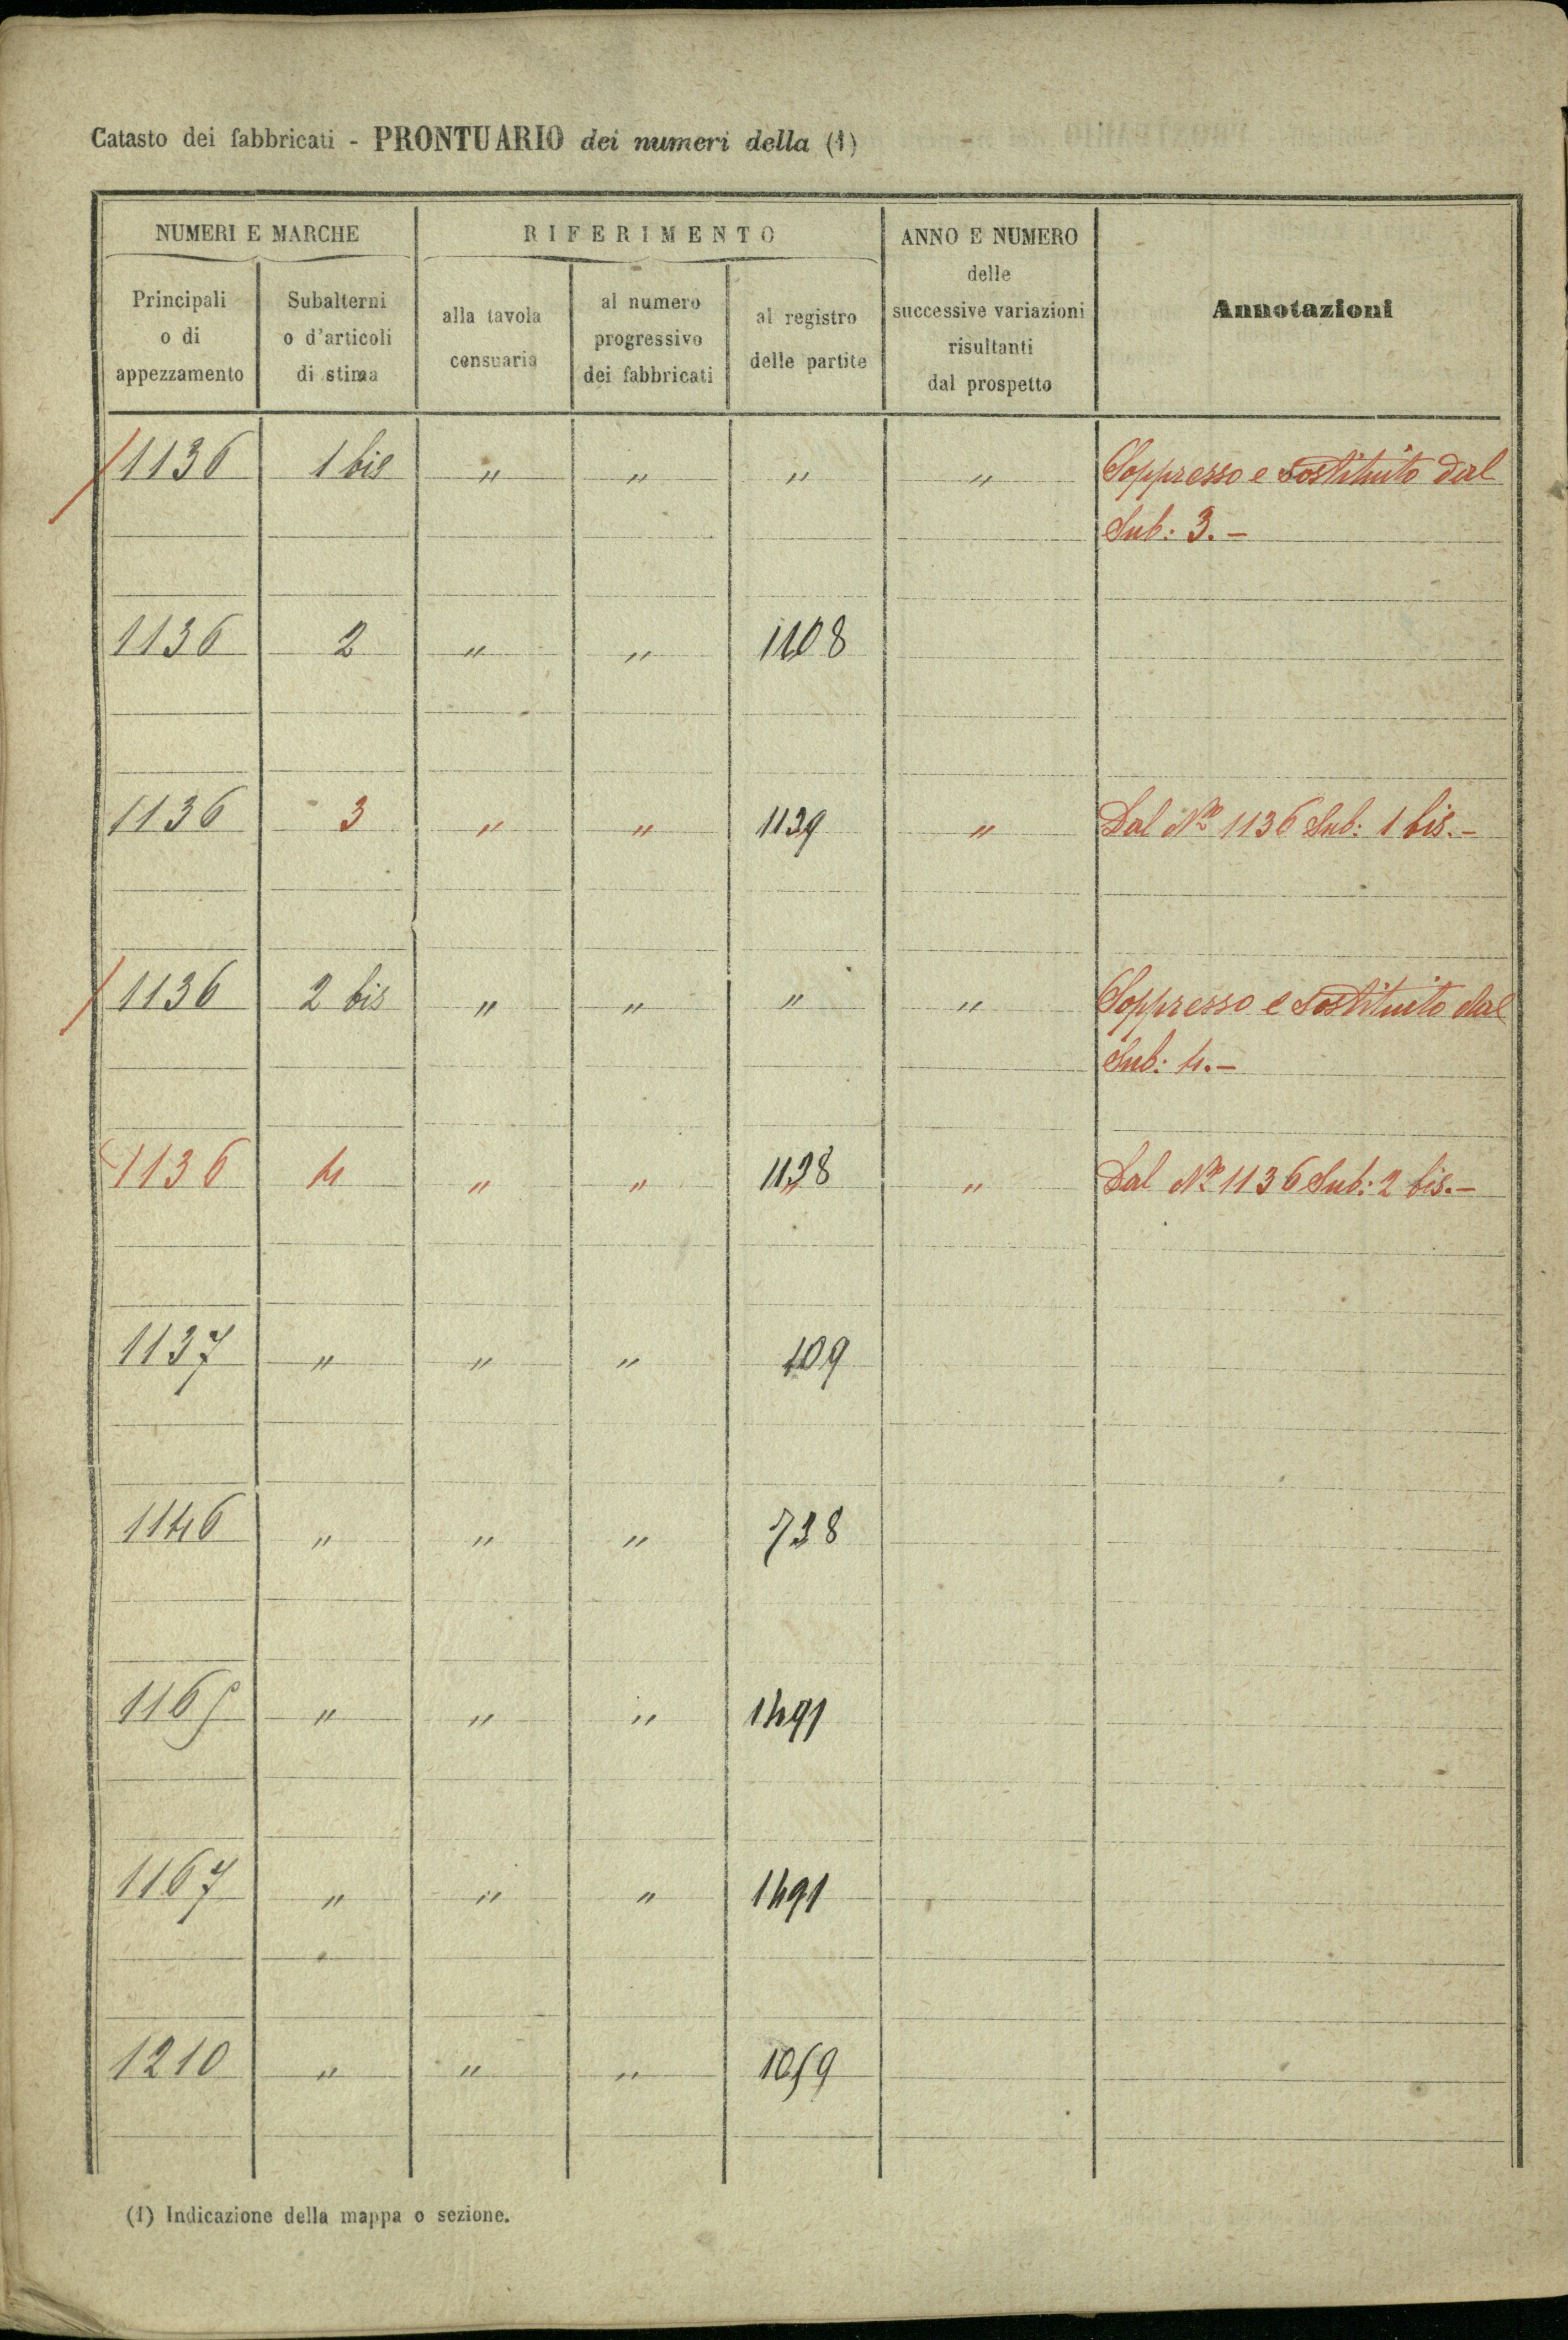 Catasto dei fabbricati - PRONTUARIO dei numeri della (1)
NUMERI E MARCHE
RIFERIMENTO
ANNO E NUMERO
delle
successive variazioni
risultanti
dal prospetto
Annotazioni
Principali
o di
appezzamento
Subalterni
o d'articoli
di stima
alla tavola
censuaria
al numero
progressivo
dei fabbricati
al registro
delle partite
1136 1 bis " " " " Soppresso e sostituito dal
Sub: 3. -
1136 2 " " 1108
1136 3 " " 1139 " Dal No 1136 Sub: 1 bis. -
1136 2 bis " " " " Soppresso e sostituito dal
Sub: 4. -
1136 4 " " 1138 " Dal No 1136 Sub: 2 bis. -
1137 " " " 109
1146 " " " 738
1165 " " " 1491
1167 " " " 1491
1210 " " " 1059
(1) Indicazione della mappa o sezione.